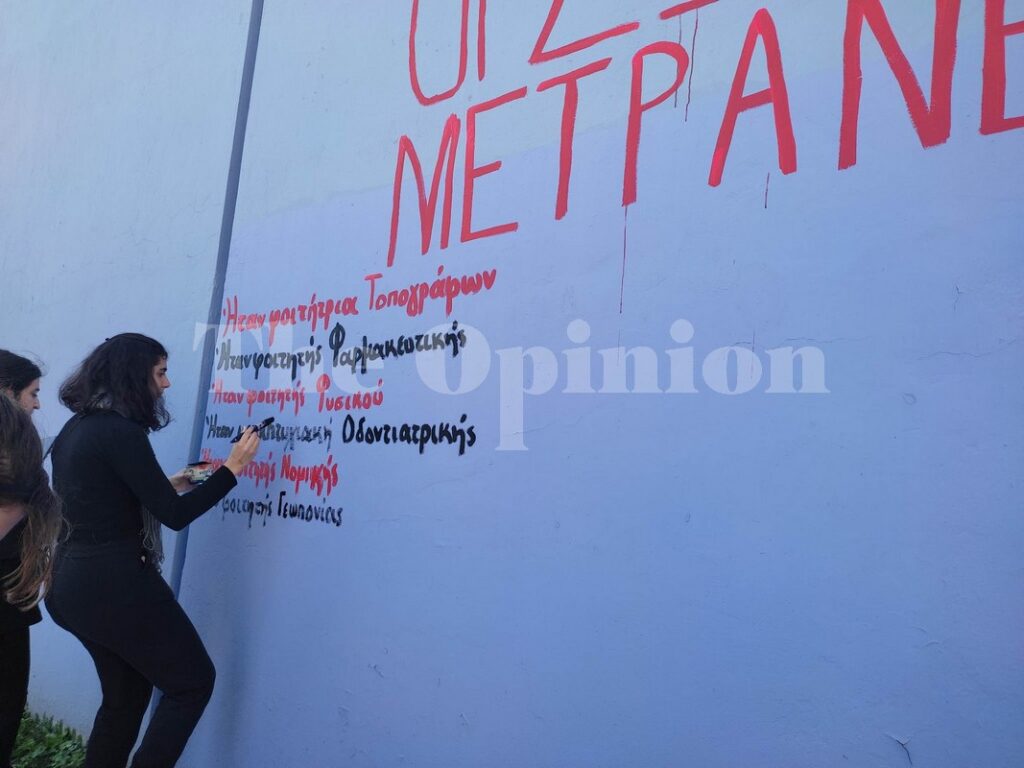 ΜΕΤΡΑΝΕ
Ήταν φοιτήτρια Τοπογράφων
Ήταν φοιτητής Φαρμακευτικής
Ήταν φοιτητής Φυσικού
Ήταν Οδοντιατρικής
Νομικής
φοιτητής Γεωπονίας
The Opinion